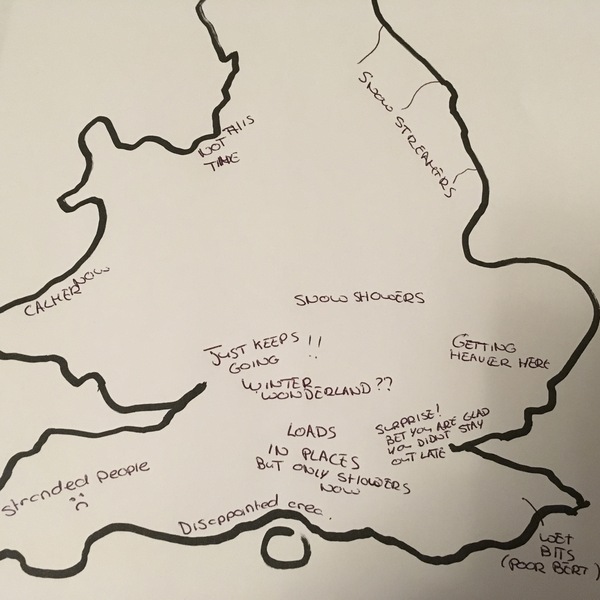 SNOW STREAMERS
NOT THIS
TIME
CALMER NOW
SNOW SHOWERS
JUST KEEPS !!
GOING
GETTING
HEAVIER HERE
WINTER
WONDERLAND??
SURPRISE!
BET YOU ARE GLAD
YOU DIDNT STAY
OUT LATE
LOADS
IN PLACES
BUT ONLY SHOWERS
NOW
Stranded People
Disappointed area.
WET
BITS
(POOR BERT)